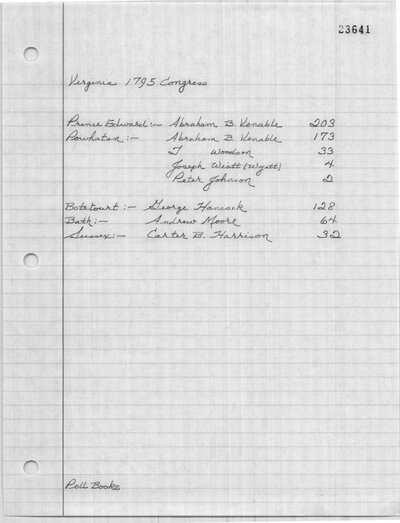 23641
Virginia 1795 Congress
Prince Edward:- Abraham B. Venable 203
Powhatan:- Abraham B. Venable 173
T Woodson 33
Joseph Wiatt (Wyatt) 4
Peter Johnson 2
Botetourt:- George Hancock 128
Bath:- Andrew Moore 64
Sussex:- Carter B. Harrison 32
Poll Books